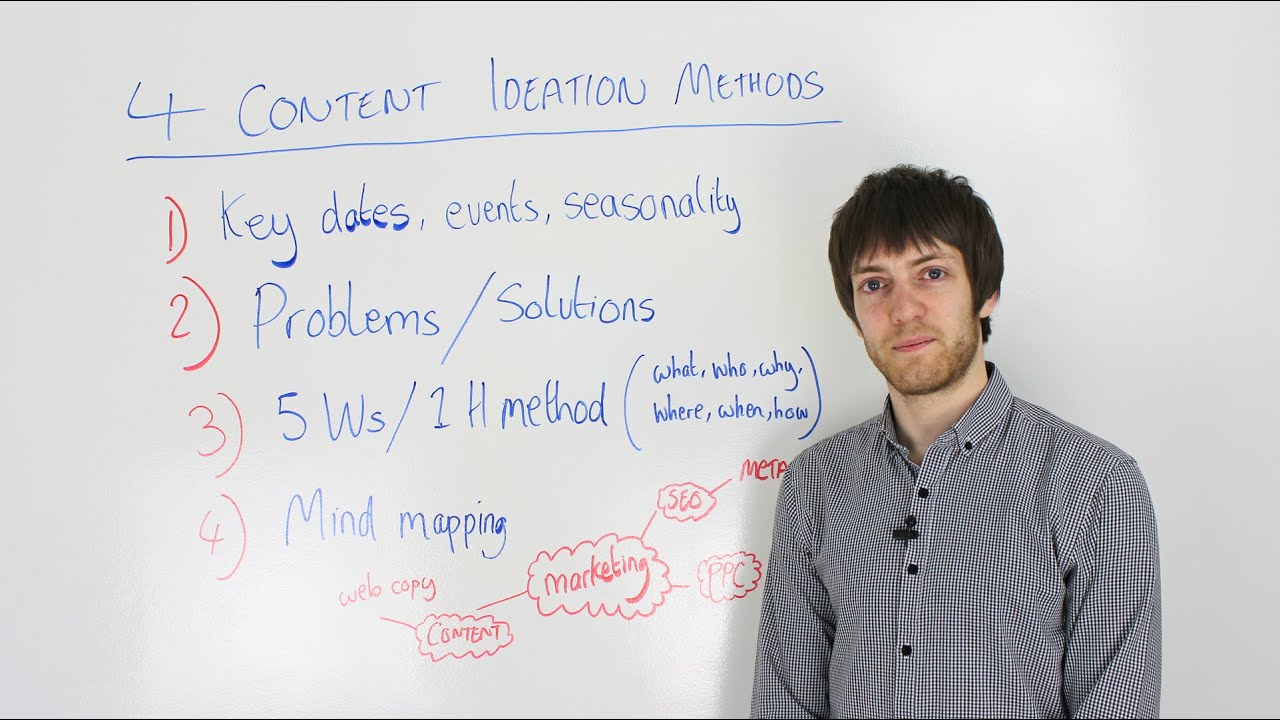 4 CONTENT IDEATION METHODS
1) Key dates, events, seasonality
2) Problems/Solutions
3) 5 Ws/1 H method (what, who, why,
where, when, how)
4) Mind mapping
META
SEO
marketing
PPC
web copy
CONTENT